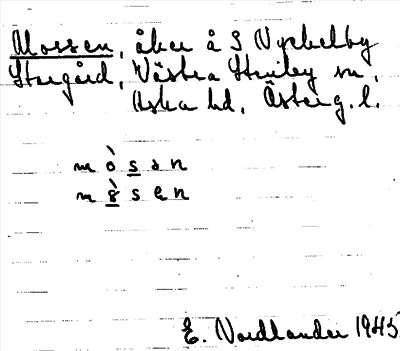 Mossen, åker å S Nyckelby
Storgård, Västra Stenby sn,
Aska hd, Österg. l.
m ò s a n
m ò s e n
E. Nordlander 1945